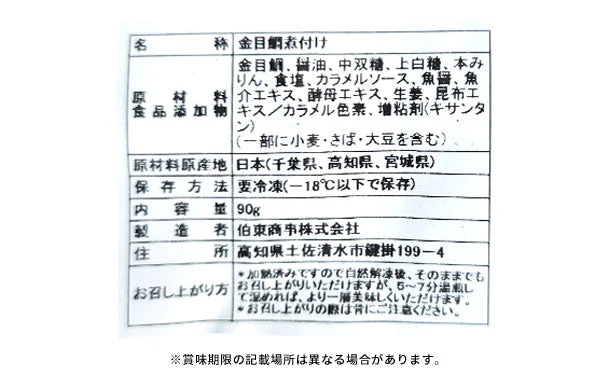 名称 金目鯛煮付け
原材料 食品添加物 金目鯛、醤油、中双糖、上白糖、本み
りん、食塩、カラメルソース、魚醤、魚
介エキス、酵母エキス、生姜、昆布エ
キス／カラメル色素、増粘剤(キサンタ
ン)
(一部に小麦・さば・大豆を含む)
原材料原産地 日本(千葉県、高知県、宮城県)
保存方法 要冷凍(－18℃以下で保存)
内容量 90g
製造者 伯東商事株式会社
住所 高知県土佐清水市鍵掛199－4
お召し上がり方 *加熱済みですので自然解凍後、そのままでも
お召し上がりいただけますが、5～7分湯煎し
て温めれば、より一層美味しくいただけます。
*お召し上がりの際は骨にご注意ください。
※賞味期限の記載場所は異なる場合があります。